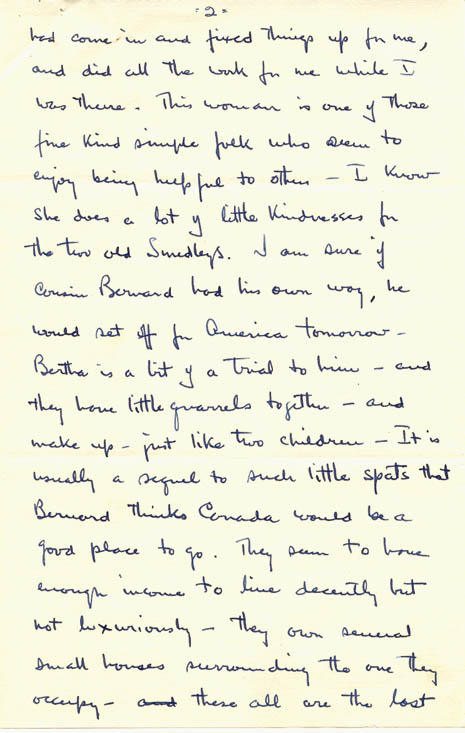 -2-
had come in and fixed things up for me,
and did all the work for me while I
was there. This woman is one of those
fine kind simple folk who seem to
enjoy being helpful to others – I know
she does a lot of little kindnesses for
the two old Smedleys. I am sure if
Cousin Bernard had his own way, he
would set off for America tomorrow –
Bertha is a bit of a trial to him – and
they have little quarrels together – and
make up – just like two children – It is
usually a sequel to such little spats that
Bernard thinks Canada would be a
good place to go. They seem to have
enough income to live decently but
not luxuriously – they own several
small houses surrounding the one they
occupy – and these all are the last